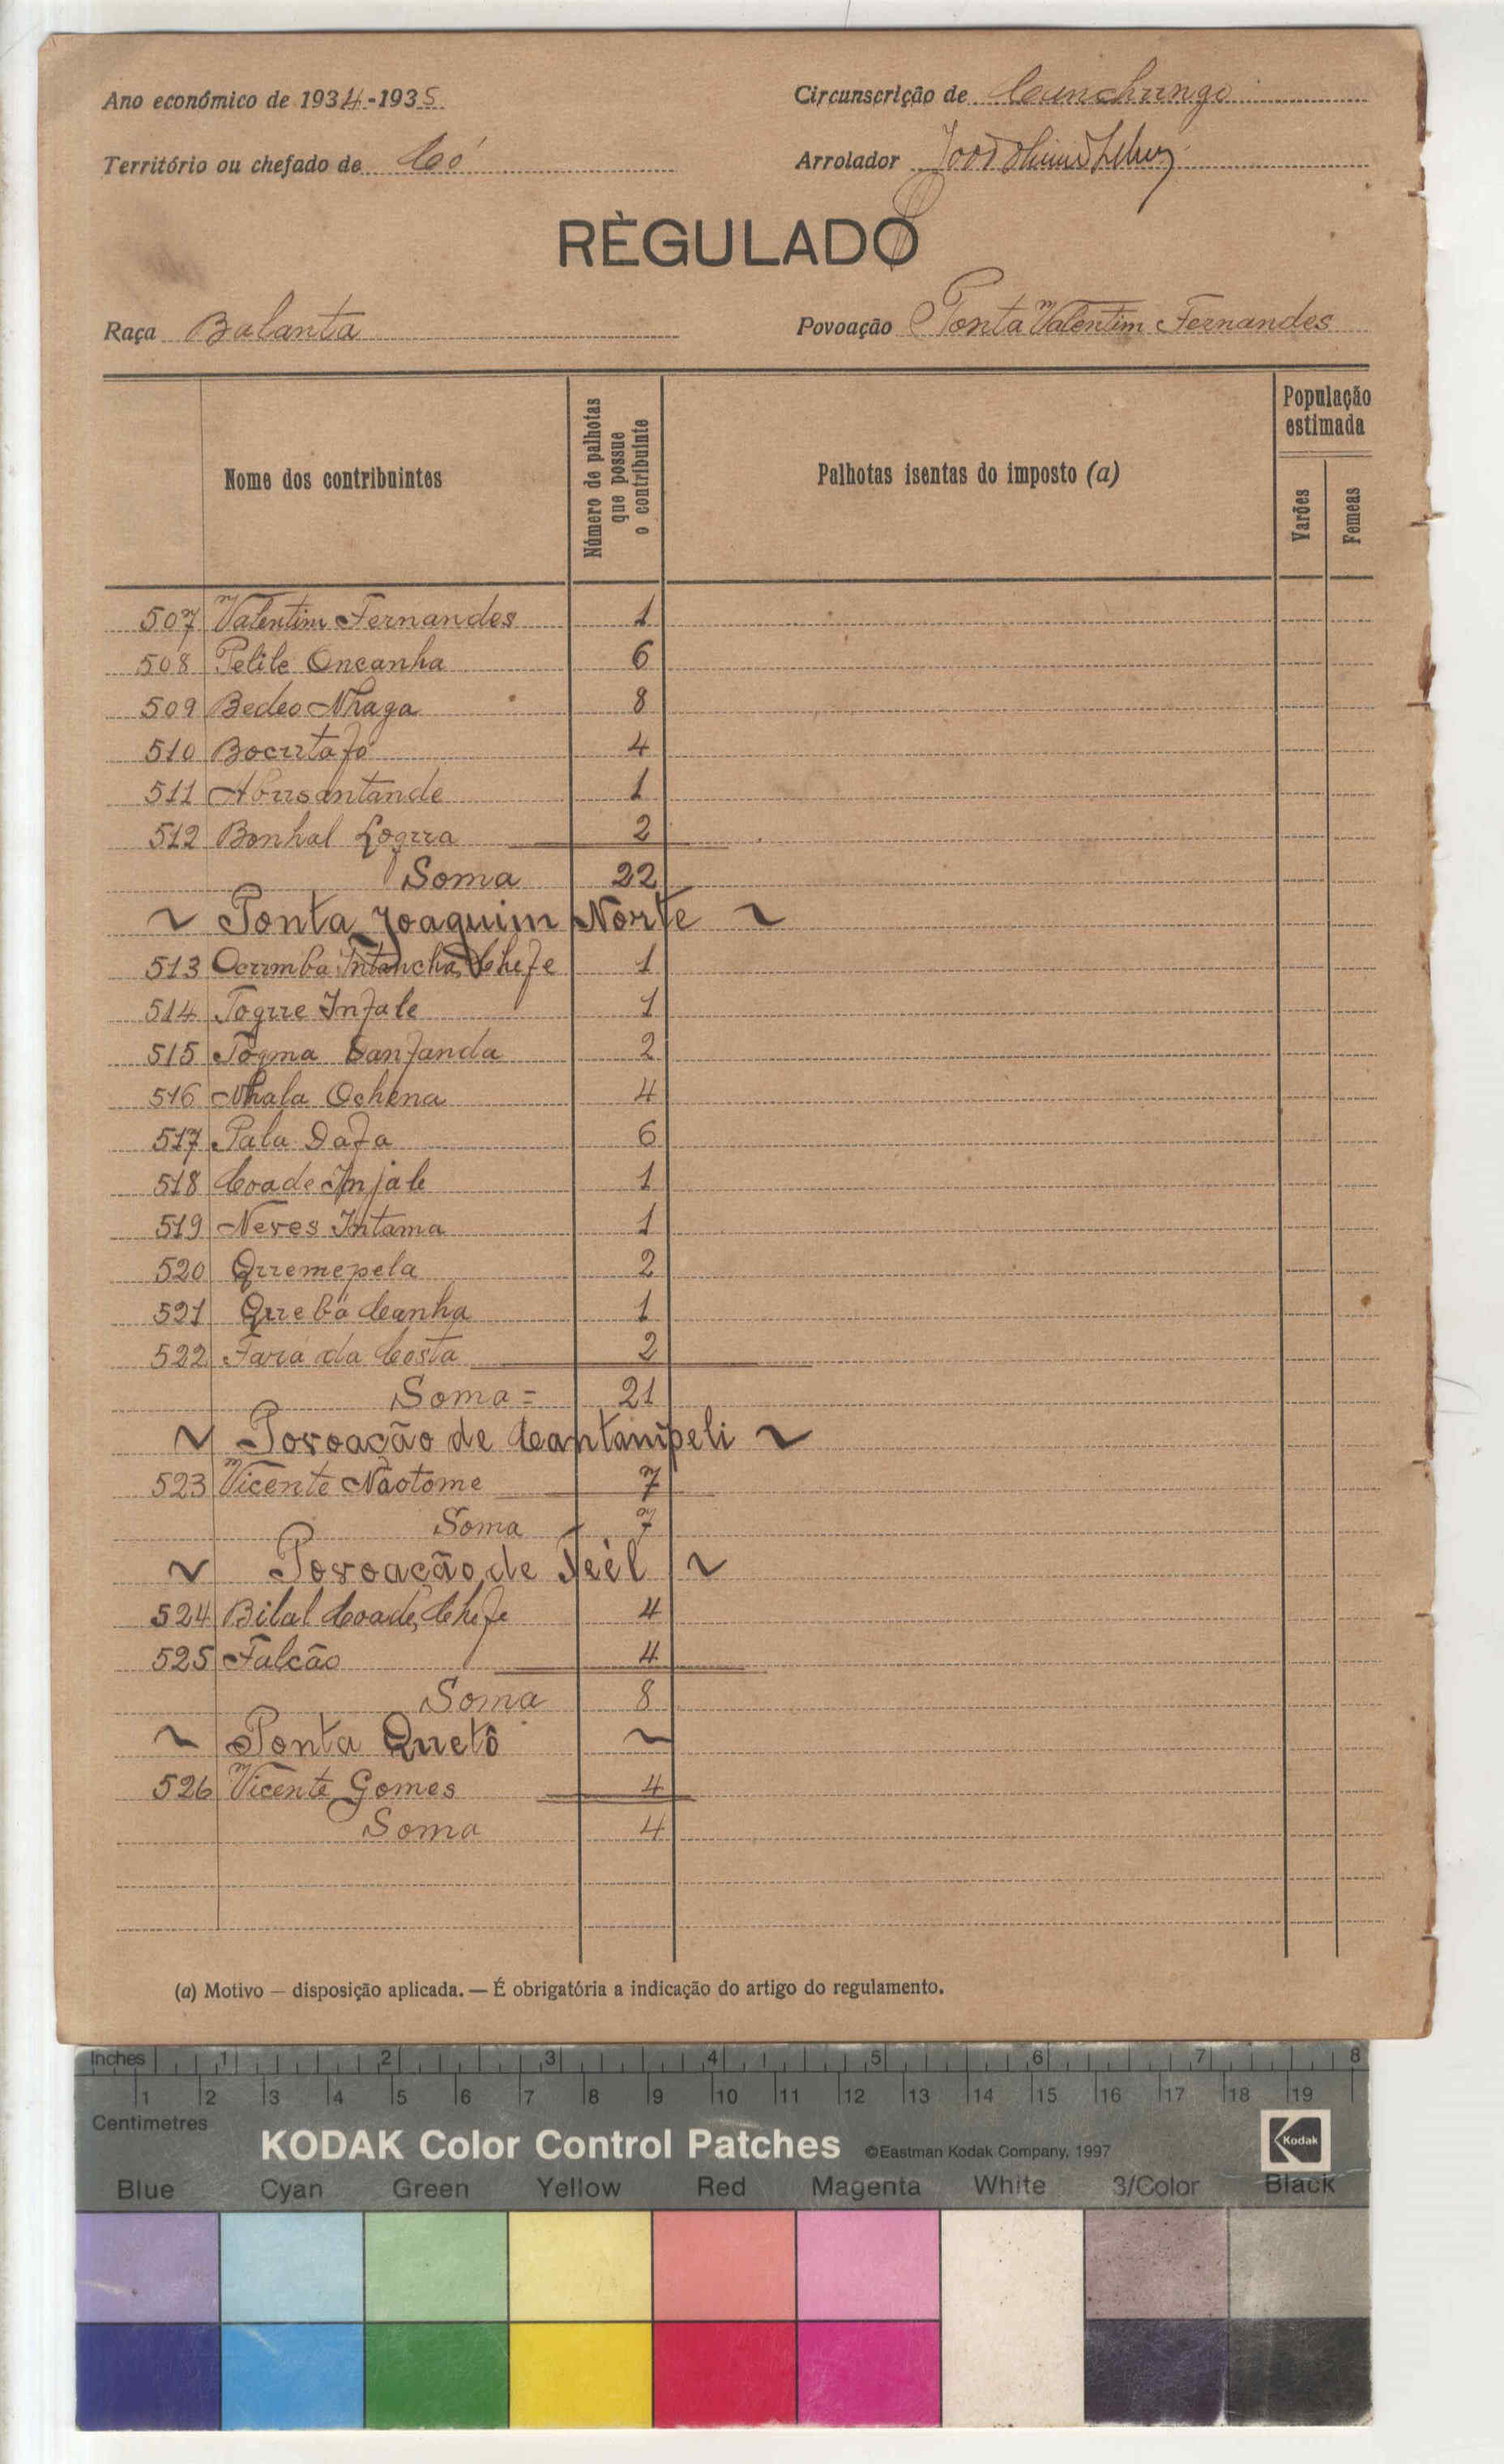 Ano económico de 1934-1935
Circunscrição de Canchungo
Território ou chefado de Có
Arrolador
RÈGULADO
Raça Balanta
Povoação Ponta Valentim Fernandes
Nome dos contribuintes
Número de palhotas que possue o contribuinte
Palhotas isentas do imposto (a)
População estimada
Varões
Femeas
507 Valentim Fernandes 1
508 Pelile Oncanha 6
509 Bedeo Nhaga 8
510 Bocutafo 4
511 Abusantande 1
512 Bonhal Logua 2
Soma 22
~ Ponta Joaquim Norte ~
513 Ocumba Intancha, Chefe 1
514 Togue Infale 1
515 Togma Canfanda 2
516 Nhala Ochena 4
517 Pala Dafa 6
518 Coade Injale 1
519 Neves Intama 1
520 Quemepela 2
521 Quebá Canha 1
522 Fara da Costa 2
Soma = 21
~ Povoação de Cantanipeli ~
523 Vicente Nàotome 7
Soma 7
~ Povoação de Teèl ~
524 Bilal Coadé, Chefe 4
525 Falcão 4
Soma 8
~ Ponta Quetô ~
526 Vicente Gomes 4
Soma 4
(a) Motivo — disposição aplicada. — É obrigatória a indicação do artigo do regulamento.
Inches 1 2 3 4 5 6 7 8
1 2 3 4 5 6 7 8 9 10 11 12 13 14 15 16 17 18 19
Centimetres
KODAK Color Control Patches ©Eastman Kodak Company, 1997 Kodak
Blue Cyan Green Yellow Red Magenta White 3/Color Black